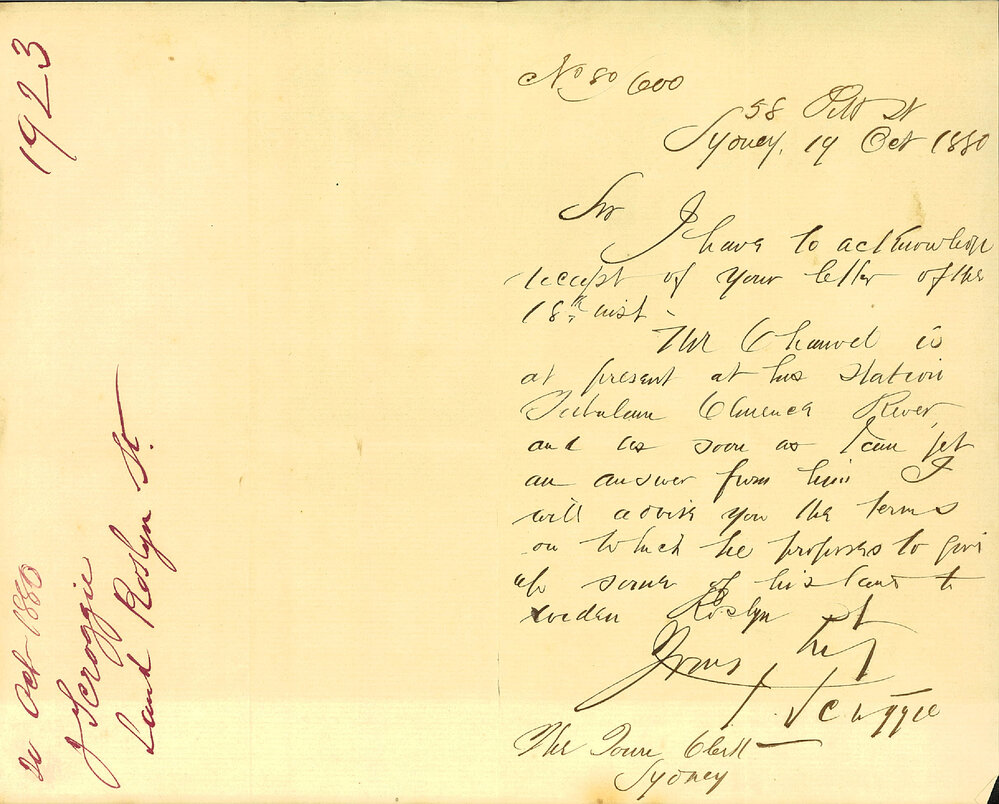 No 80 600
58 Pitt St
Sydney, 19 Oct 1880
Sir
I have to acknowledge
receipt of your letter of the
18th inst.
Mr Chauvel is
at present at his Station
Clarence River,
and as soon as I can get
an answer from him I
will advise you the terms
on which he proposes to give
up some of his land to
widen Roslyn St
Yours
J Scroggie
The Town Clerk
Sydney
1923
20 Oct 1880
J Scroggie
Land Roslyn St.